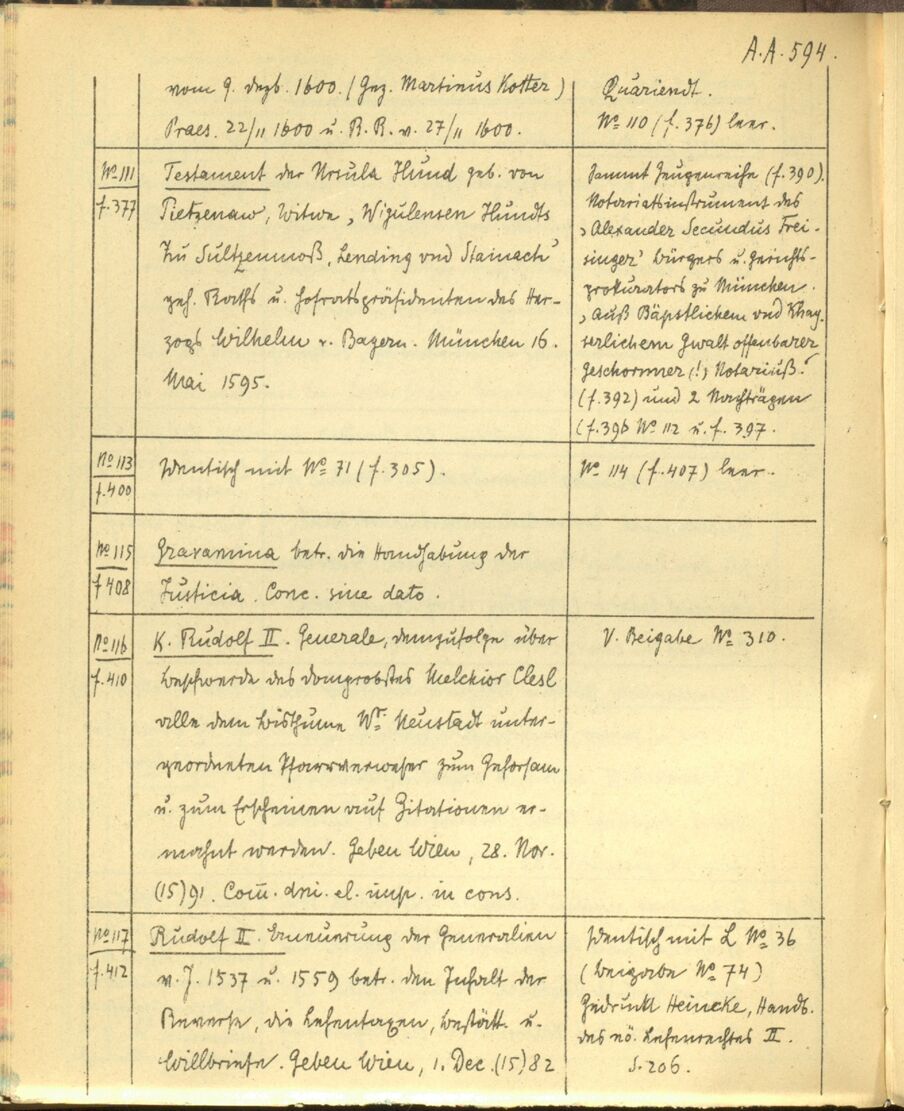 A.A. 594.
vom 9. Dezb. 1600. (Gez. Martinus Kotter)
Praes. 22/11 1600 u. R. R. v. 27/11 1600.
Quariendt.
No 110 (f. 376) leer.
No 111
f. 377
Testament der Ursula Hund geb. von
Pietzenaw, Witwe, Wigulensen Hundts
zu Sültzenmoß, Lending vnd Stainach'
geh. Raths u. Hofratspräsidenten des Her-
zogs Wilhelm v. Bayern. München 16.
Mai 1595.
Sammt Zeugenreihe (f. 390).
Notariatsinstrument des
'Alexander Secundus Frei-
singer' Bürgers u. Gerichts-
prokurators zu München.
'Auß Bäpstlichem vnd Khay-
serlichem Gwalt offenbarer
geschwornner (!) Notariuß.'
(f. 392) und 2 Nachträgen
(f. 396 No 112 u. f. 397.
No 113
f. 400
Identisch mit No 71 (f. 305).
No 114 (f. 407) leer.
No 115
f 408
Gravamina betr. die Handhabung der
Justicia. Conc. sine dato.
No 116
f. 410
K. Rudolf II. Generale, demzufolge über
Beschwerde des Dompropstes Melchior Clesl
alle dem Bisthume Wr. Neustadt unter-
geordneten Pfarrverweser zum Gehorsam
u. zum Erscheinen auf Zitationen er-
mahnt werden. Geben Wien, 28. Nov.
(15)91. Com̅. dni. el. imp. in cons.
V. Beigabe No 310.
No 117
f. 412
Rudolf II. Erneuerung der Generalien
v. J. 1537 u. 1559 betr. den Inhalt der
Reverse, die Lehentaxen, Bestätt. u.
Willbriefe. Geben Wien, 1. Dec. (15)82
Identisch mit L No 36
(Beigabe No 74)
Gedruckt Heincke, Handb.
des nö. Lehenrechtes II.
S. 206.